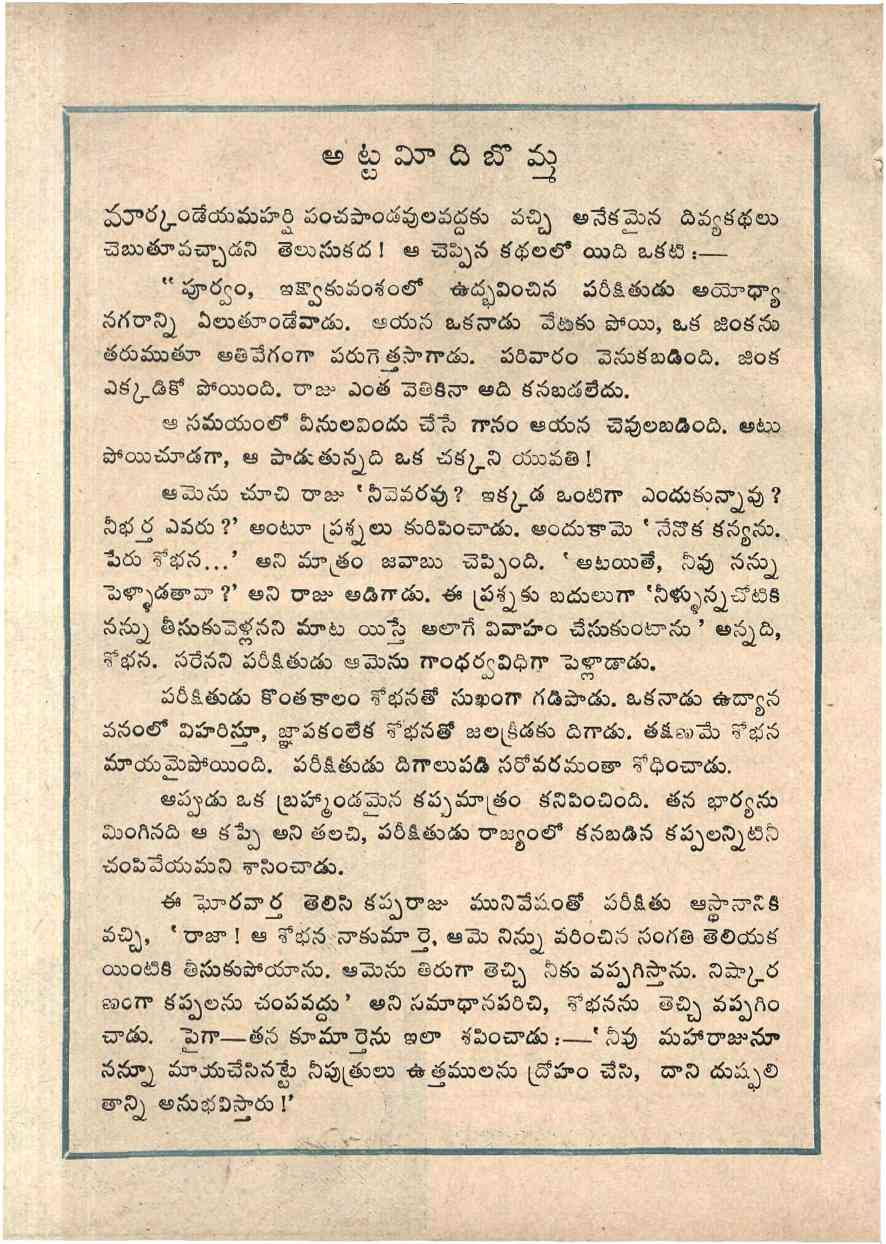 అట్టమీదిబొమ్మ
మార్కండేయమహర్షి పంచపాండవులవద్దకు వచ్చి అనేకమైన దివ్యకథలు
చెబుతూవచ్చాడని తెలుసుకద! ఆ చెప్పిన కథలలో యిది ఒకటి :—
“పూర్వం, ఇక్ష్వాకువంశంలో ఉద్భవించిన పరీక్షితుడు అయోధ్యా
నగరాన్ని ఏలుతూండేవాడు. ఆయన ఒకనాడు వేటకు పోయి, ఒక జింకను
తరుముతూ అతివేగంగా పరుగెత్తసాగాడు. పరివారం వెనుకబడింది. జింక
ఎక్కడికో పోయింది. రాజు ఎంత వెతికినా అది కనబడలేదు.
ఆ సమయంలో వీనులవిందు చేసే గానం ఆయన చెవులబడింది. అటు
పోయిచూడగా, ఆ పాడుతున్నది ఒక చక్కని యువతి!
ఆమెను చూచి రాజు ‘నీవెవరవు? ఇక్కడ ఒంటిగా ఎందుకున్నావు?
నీభర్త ఎవరు?’ అంటూ ప్రశ్నలు కురిపించాడు. అందుకామె ‘నేనొక కన్యను.
పేరు శోభన...’ అని మాత్రం జవాబు చెప్పింది. ‘అటయితే, నీవు నన్ను
పెళ్ళాడతావా?’ అని రాజు అడిగాడు. ఈ ప్రశ్నకు బదులుగా ‘నీళ్ళున్నచోటికి
నన్ను తీసుకువెళ్లనని మాట యిస్తే అలాగే వివాహం చేసుకుంటాను’ అన్నది,
శోభన. సరేనని పరీక్షితుడు ఆమెను గాంధర్వవిధిగా పెళ్లాడాడు.
పరీక్షితుడు కొంతకాలం శోభనతో సుఖంగా గడిపాడు. ఒకనాడు ఉద్యాన
వనంలో విహరిస్తూ, జ్ఞాపకంలేక శోభనతో జలక్రీడకు దిగాడు. తక్షణమే శోభన
మాయమైపోయింది. పరీక్షితుడు దిగాలుపడి సరోవరమంతా శోధించాడు.
అప్పుడు ఒక బ్రహ్మాండమైన కప్పమాత్రం కనిపించింది. తన భార్యను
మింగినది ఆ కప్పే అని తలచి, పరీక్షితుడు రాజ్యంలో కనబడిన కప్పలన్నిటినీ
చంపివేయమని శాసించాడు.
ఈ ఘోరవార్త తెలిసి కప్పరాజు మునివేషంతో పరీక్షితు ఆస్థానానికి
వచ్చి, ‘రాజా! ఆ శోభన నాకుమార్తె, ఆమె నిన్ను వరించిన సంగతి తెలియక
యింటికి తీసుకుపోయాను. ఆమెను తిరుగా తెచ్చి నీకు వప్పగిస్తాను. నిష్కార
ణంగా కప్పలను చంపవద్దు’ అని సమాధానపరిచి, శోభనను తెచ్చి వప్పగిం
చాడు. పైగా—తన కూమార్తెను ఇలా శపించాడు :—‘నీవు మహారాజునూ
నన్నూ మాయచేసినట్టే నీపుత్రులు ఉత్తములను ద్రోహం చేసి, దాని దుష్ఫలి
తాన్ని అనుభవిస్తారు!’